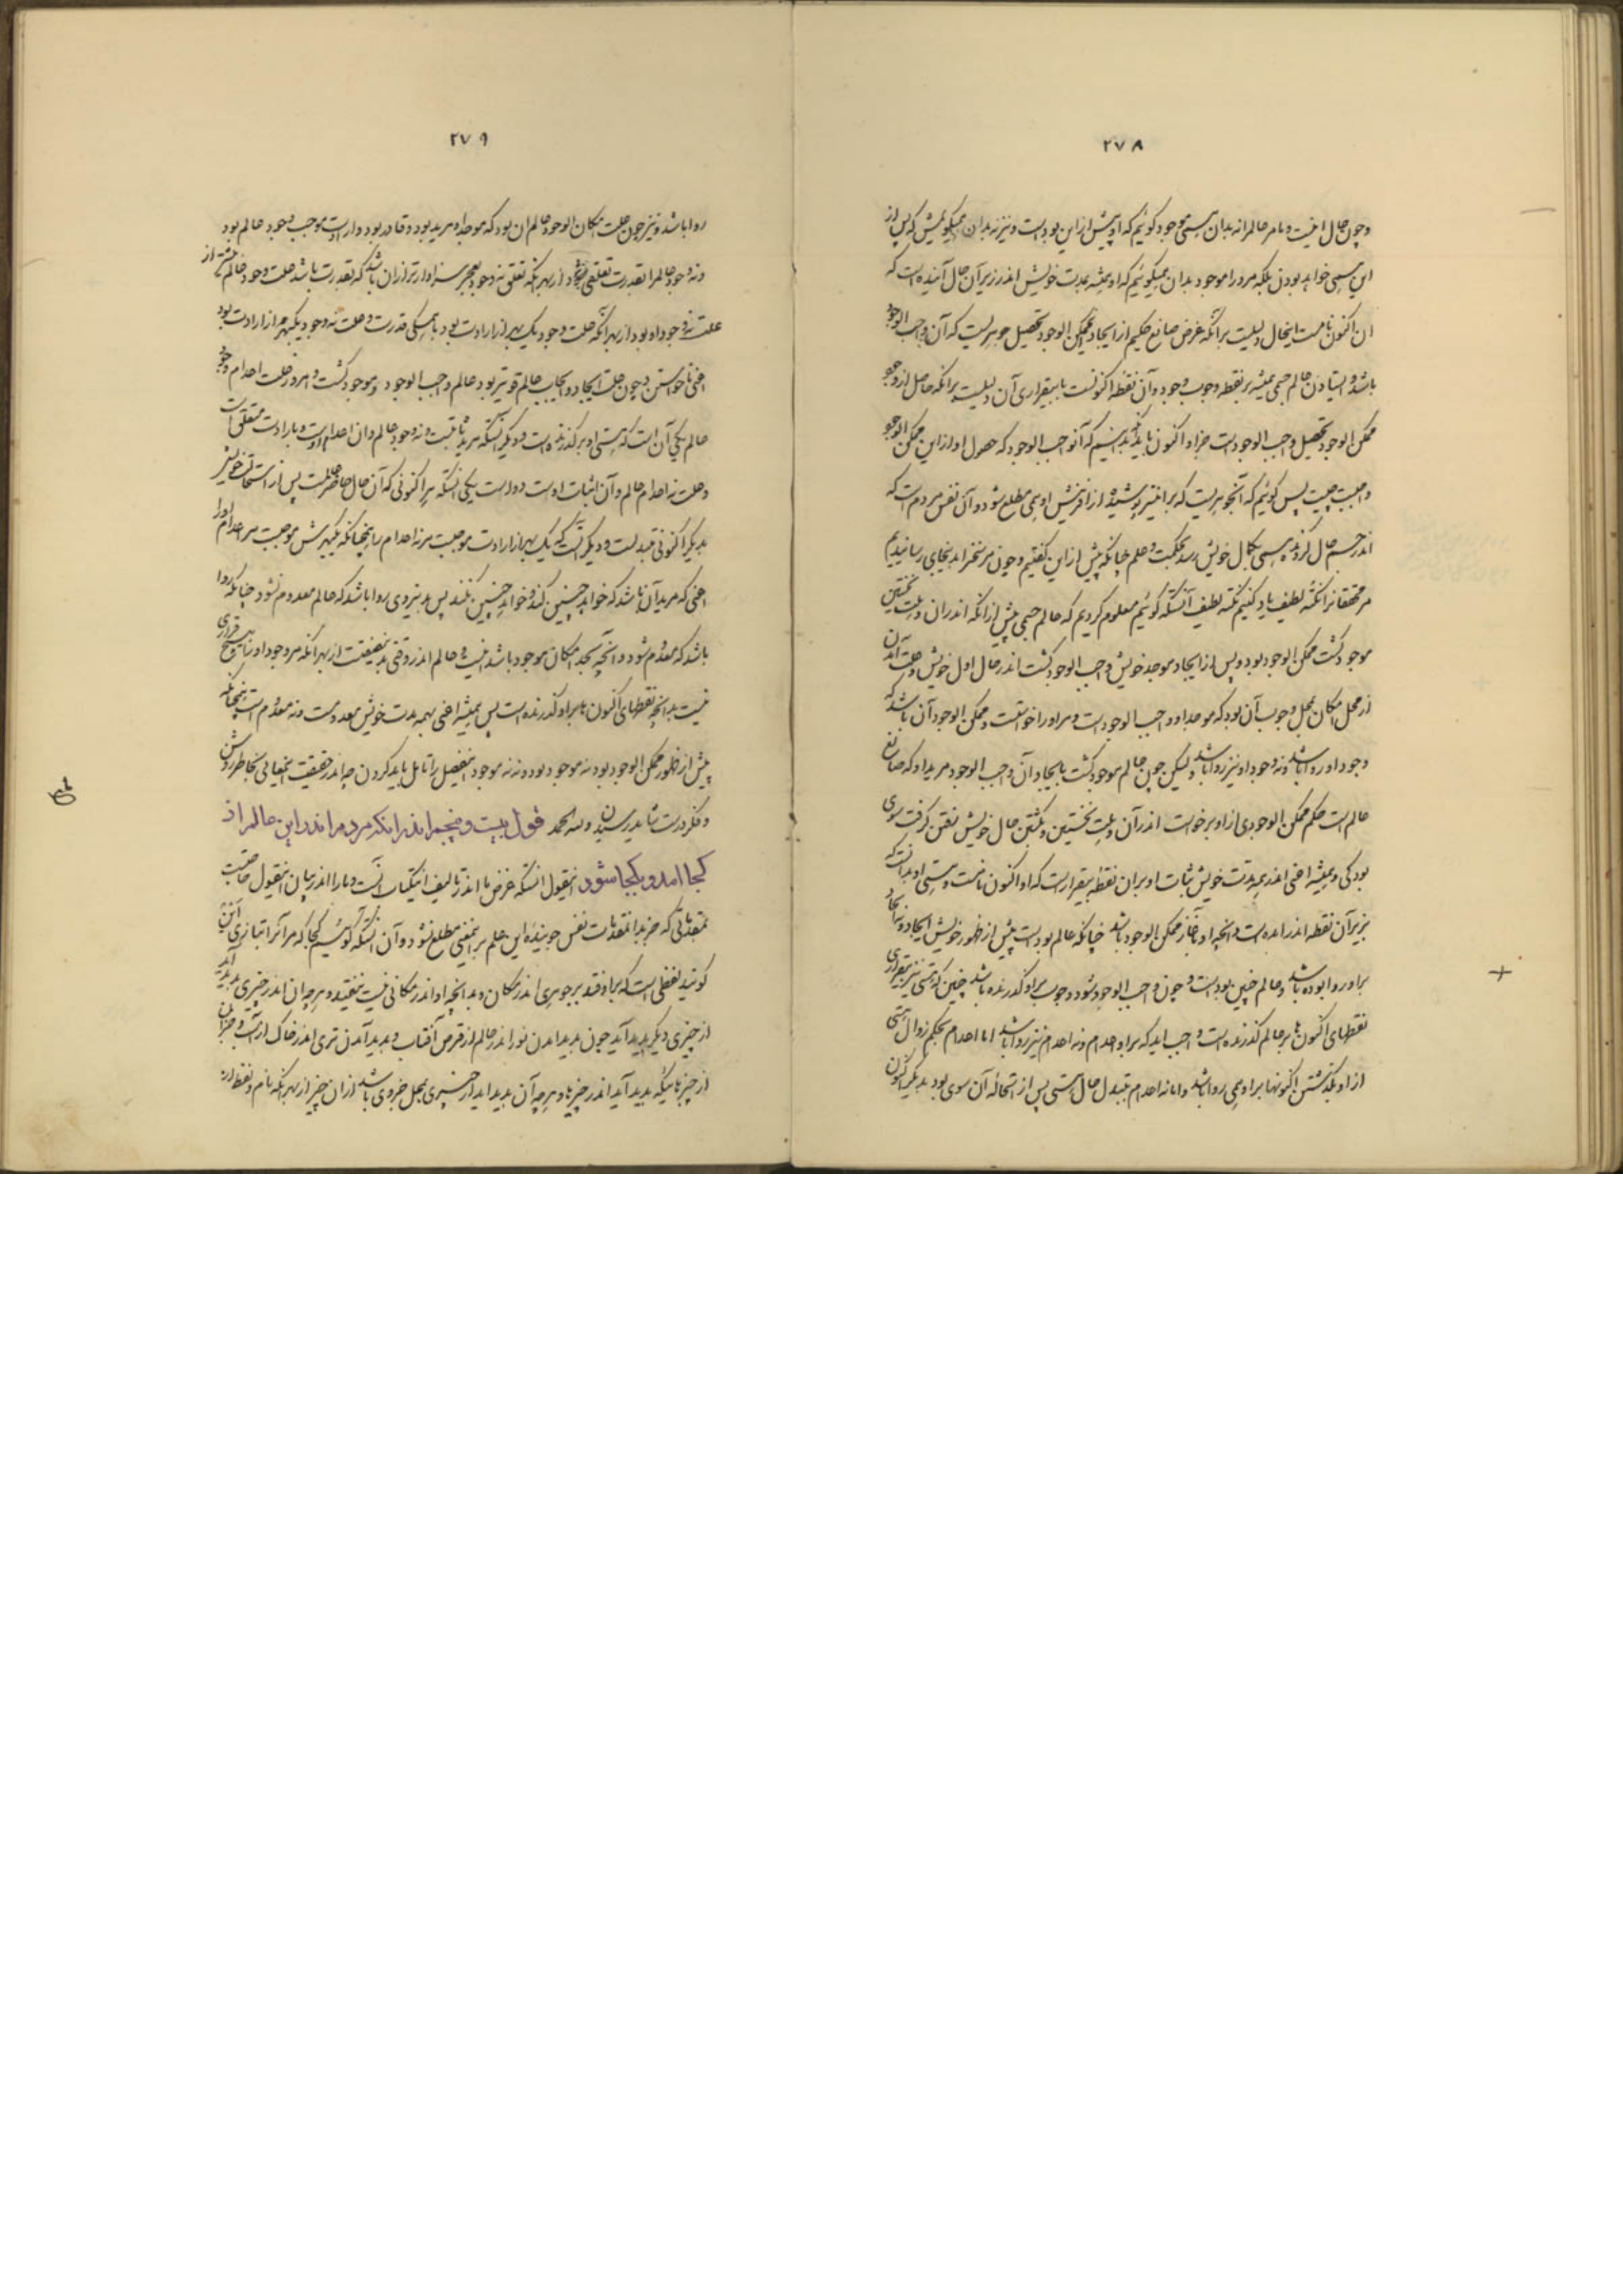 ۲۷۸
وچون حال اینست و ما مر عالم را نه بدان همی موجود گوئیم که او پیش از این بود است و نیز نه بدان همیگوئیمش که پس از
این همی خواهد بودن بلکه مرورا موجود بدان همیگوئیم که او همیشه بمدت خویش اندر زیر آن حال آینده است که
آن اکنون نامست اینحال دلیلست برآنکه غرض صانع حکیم از ایجاد ممکن الوجود تحصیل جوهریست که آن واجب الوجود
باشد و ایستادن عالم جسمی همیشه بر نقطه وجوب وجود و آن نقطه اکنونست با بیقراری آن دلیلست برآنکه حاصل از وجود
ممکن الوجود تحصیل واجب الوجود است جز او اکنون باید که بدانیم که آن واجب الوجود که حصول او از این ممکن الوجود
واجبست چیست پس گوئیم که آنجوهریست که بر اینچیز پوشیده از آفرینش او همی مطلع شود و آن نفس مردم است که
اندر جسم حال گردنده همی بکمال خویش رسد بحکمت و علم چنانکه پیش از این گفتیم و چون مر سخن را بدینجای رسانیدیم
مر محققانرا نکته لطیف یاد کنیم نکته لطیف آنستکه گوئیم معلوم کردیم که عالم جسمی پیش از آنکه اندر آن وهلت نخستین
موجود گشت ممکن الوجود بود و پس از ایجاد موجد خویش واجب الوجود گشت اندر حال اول خویش و علت آمدن
از محل امکان بمحل وجوب آن بود که موجد او واجب الوجود است و مر اورا خواست و ممکن الوجود آن باشد که
وجود او روا باشد و نه وجود او نیز روا باشد ولیکن چون عالم موجود گشت بایجاد آن واجب الوجود مرید او که صانع
عالم است حکم ممکن الوجودی از او برخاست اندر آن وهلت نخستین و بگشتن حال خویش نقص گرفت سوی
بودگی و همیشه اعنی اندر همه مدت خویش ثبات او بر آن نقطه بیقرار است که او اکنون نامست و هستی او بدانستکه
بزیر آن نقطه اندر آمده است و آنچه او بآغاز ممکن الوجود باشد چنانکه عالم بود است پیش از ظهور خویش ایجاد و نه ایجاد
بر او روا بوده باشد و عالم چنین بود است و چون واجب الوجود شود و وجوب بر او گذرنده باشد چنین که هستی نیز بیقراری
نقطهای اکنون ها بر عالم گذرنده است واجب آید که بر او اعدام و نه اعدام نیز روا باشد اما اعدام بحکم زوال هستی
از او بگذشتن اکنونها بر او همی روا باشد و اما نه اعدام بتبدل حال هستی پس از استحاله آن سوی بود بدیگر اکنون
۲۷۹
روا باشد و نیز چون علت امکان الوجود عالم آن بود که موجد او مرید بود و قادر بود و ارادت موجب وجود عالم بود
ونه وجود عالم را بقدرت تعلقی نبود از بهر آنکه تعلق نه وجود بعجز سزاوارتر از آن باشد که بقدرت باشد علت وجود عالم بیشتر از
علت نه وجود او بود از بهر آنکه علت وجود یک بهر از ارادت بود با همگی قدرت و علت نه وجود یکبهر از ارادت بود
اعنی ناخواستن و چون علت ایجاد و ایجاب عالم قویتر بود عالم واجب الوجود و موجود گشت و امروز علت اعدام وجود
عالم یکی آن است که هستی او بر گذرنده است و دیگر آنستکه مرید ثابتست و نه وجود عالم و آن اعدام اوست و بارادت متعلق است
وعلت نه اعدام عالم و آن اثبات اوست دو است یکی آنستکه هر اکنونی که آن حال حاضر عالمست پس از استحالت خویش
بدیگر اکنونی متبدلست و دیگر آنست که یک بهر از ارادت موجبست مرنه اعدام را همچنانکه دیگر بهرش موجبست مر اعدام اورا
اعنی که مرید آن باشد که خواهد چنین کند و خواهد چنین نکند پس بدینروی روا باشد که عالم معدوم نشود چنانکه روا
باشد که معدوم شود و آنچه بحد امکان موجود باشد نیست و عالم اندر وقتی بدینصفتست از بهر آنکه مر وجود او را هیچ قراری
نیست بدانچه نقطهای اکنون ها بر او گذرنده است پس همیشه اعنی بهمه مدت خویش معدومست و نه معدوم است همچنانکه
پیش از ظهور ممکن الوجود بود نه موجود بود و نه نه موجود اینفصل را تأمل باید کردن چه اندر حقیقت اینمعانی بخاطر روشن
وفکرت درست شاید رسیدن ولله الحمد قول بیست و پنجم اندر آنکه مردم اندر این عالم از
کجا آمد و بکجا شود اینقول آنستکه غرض ما اندر تألیف اینکتاب آنست و ما را اندر بیان اینقول حاجتست
بمقدماتی که جز بدان مقدمات نفس جوینده این علم بر اینمعنی مطلع نشود و آن آنستکه گوئیم کجا که مر آنرا بتازی این
گویند لفظی است که بر او فتد بر جوهری اندر مکان و بدانچه او اندر مکانی نیست نیفتد و هرچه آن اندر چیزی پدید آید
از چیزی دیگر پدید آید چون پدید آمدن نور اندر عالم از قرص آفتاب و پدید آمدن تری اندر خاک از آب و جز آن
از چیزهائیکه پدید آید اندر چیزها و هرچه آن پدید آید از چیزی بمحل جزوی باشد از آن چیز از بهر آنکه نام و لفظ از